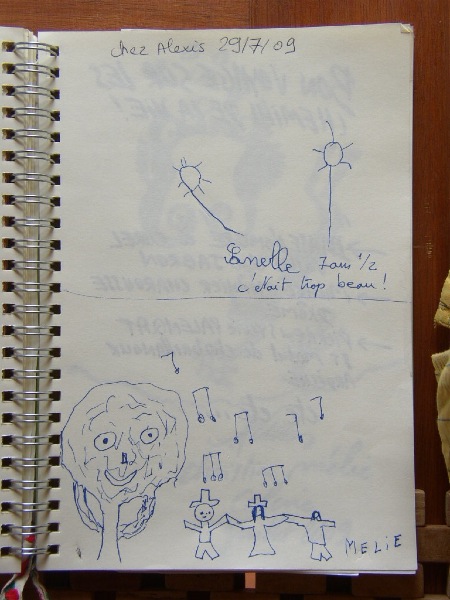 chez Alexis 29/7/09
7 ans 1/2
c'était trop beau !
MELiE